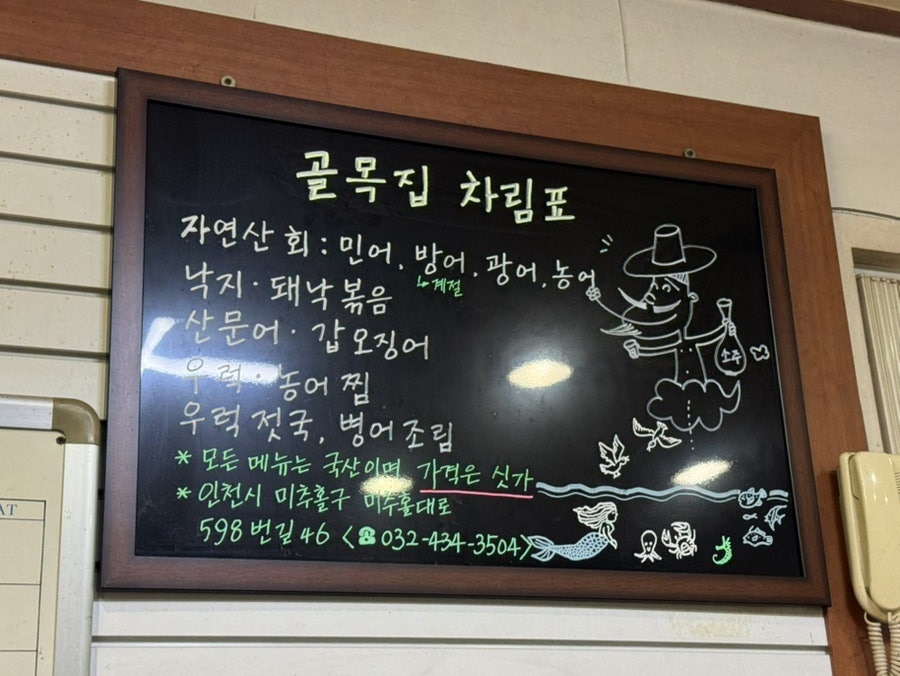 골목집 차림표
자연산 회 : 민어, 방어, 광어, 농어
↳계절
낙지 · 돼낙볶음
산문어 · 갑오징어
우럭 · 농어 찜
우럭 젓국, 병어조림
* 모든 메뉴는 국산이며 가격은 싯가
* 인천시 미추홀구 미추홀대로
598번길 46 <☎032-434-3504>
소주
AT